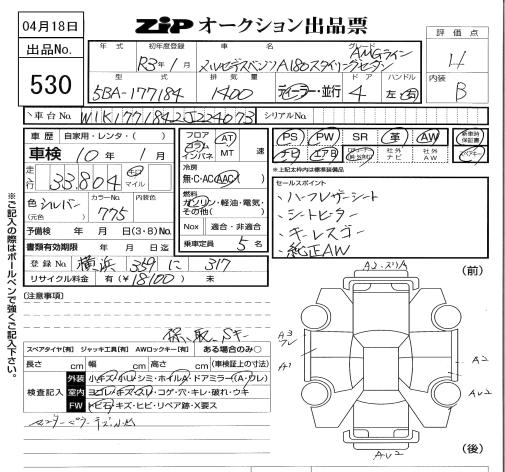 04月18日
ZIP オークション出品票
出品No.
530
評価点
4
内装
B
年式 初年度登録 車名 グレード
R3年1月 メルセデスベンツA180スタイリングセダン AMGライン
型式 排気量 ドア ハンドル
5BA-177184 1400 ディーラー・並行 4 左・右
車台No. W1K1771842J224073 シリアルNo.
車歴 自家用・レンタ・( )
車検 10年1月
走行 33,804 km マイル
色 シルバー カラーNo. 775 内装色
(元色)
予備検 年 月 日(3・8)No.
書類有効期限 年 月 日迄
登録No. 横浜 359 に 317
リサイクル料金 有(¥18100) 未
フロア コラム インパネ AT MT 速
冷房 無・C・AC・AAC
燃料 ガソリン・軽油・電気・その他( )
Nox 適合・非適合
乗車定員 5名
PS PW SR 革 AW 新車時保証書
ナビ エアB 社外ナビ 社外AW
※上記太枠内は標準装備品
セールスポイント
・ハーフレザーシート
・シートヒーター
・キーレスゴー
・純正AW
※ご記入の際はボールペンで強くご記入下さい。
(注意事項)
保、取、Sキー
スペアタイヤ[有] ジャッキ工具[有] AWロックキー[有] ある場合のみ○
長さ cm 幅 cm 高さ cm (車検証上の寸法)
検査記入
外装 小キズ・小凹・シミ・ホイルA・ドアミラー(A・ワレ)
室内 ヨゴレ・キズ・スレ・コゲ・穴・キレ・破れ・ウキ
FW トビ石・キズ・ヒビ・リペア跡・X要ス
(前)
A3
A1
A2
AW2
AW2
(後)